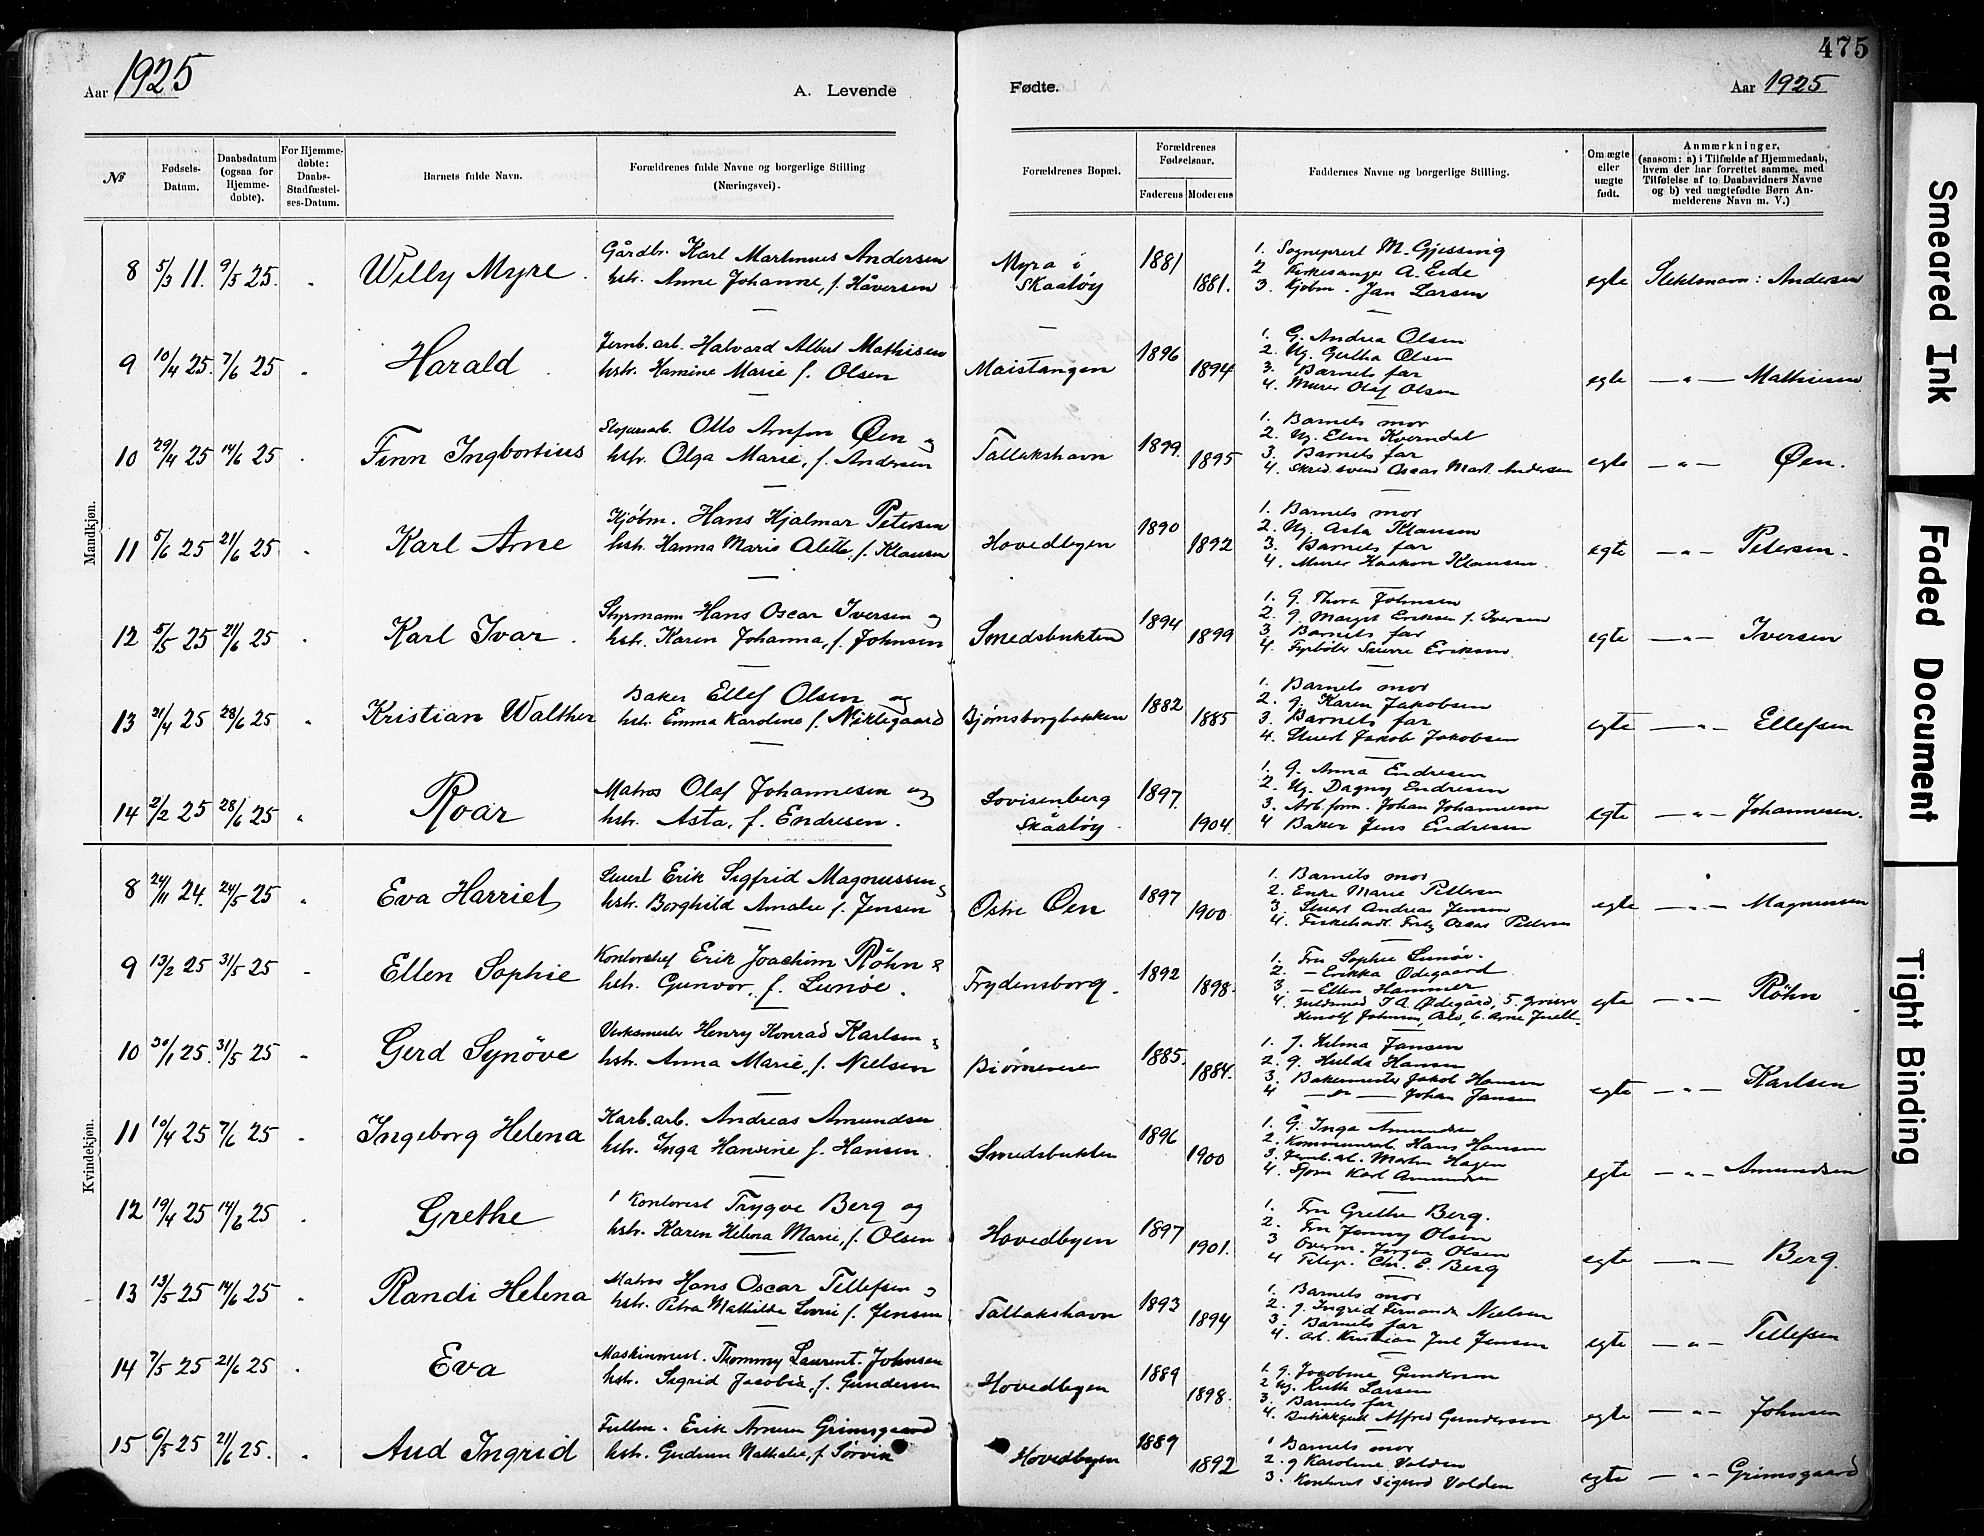 475
Aar 1925
A. Levende
Fødte.
Aar 1925
№
Fødsels-Datum.
Daabsdatum (ogsaa for Hjemme-døbte).
For Hjemme-døbte: Daabs-Stadfæstel-ses-Datum.
Barnets fulde Navn.
Forældrenes fulde Navne og borgerlige Stilling (Næringsvei).
Forældrenes Bopæl.
Forældrenes Fødselsaar.
Faderens
Moderens
Faddernes Navne og borgerlige Stilling.
Om ægte eller uægte født.
Anmærkninger,
(saasom: a) i Tilfælde af Hjemmedaab,
hvem der har forrettet samme, med
Tilføielse af to Daabsvidners Navne
og b) ved uægtefødte Børn An-
melderens Navn m. V.)
Mandkjøn.
8 5/3 11. 9/5 25. " Willy Myre.
Gårdbr. Karl Martinius Andersen
hstr. Anne Johanne, f. Håversen
Myra i Skaatøy
1881 1881.
1. Sogneprest M. Gjessing
2 Kirkesanger A. Eide
3. Kjøbm. Jan Larsen
egte Slektsnavn: Andersen
9 10/4 25. 7/6 25 " Harald
Jernb. arb. Halvard Albert Mathisen
hstr. Hamine Marie f. Olsen
Maistangen
1896 1894
1. G. Andrea Olsen
2. Ug. Gertha Olsen
3. Barnets far
4. Murer Olaf Olsen
egte — " — Mathisen
10 29/4 25 14/6 25 Finn Ingbortius
Otto Arnfon Øen og
hstr. Olga Marie, f. Andersen
Tallakshavn
1899. 1895
1. Barnets mor
2. Ug. Elen Kverndal
3. Barnets far
4. Skred.svend Oscar Mart. Andersen
egte — " — Øen.
11 5/6 25 21/6 25 " Karl Arne
Kjøbm. Hans Hjalmar Petersen
hstr. Hanna Marie Alette, f. Klausen
Hovedbyen
1890 1892
1. Barnets mor
2. Ug. Asta Klausen
3. Barnets far
4. Murer Haakon Klausen.
egte — " — Petersen.
12 5/5 25 21/6 25 " Karl Ivar.
Styrmann Hans Oscar Iversen og
hstr. Karen Johanna, f. Johnsen
Smedsbukten
1894 1899
1. g. Thora Johnsen
2. g. Margit Eriksen f. Iversen
3. Barnets far
4. Fyrbøter Eriksen.
egte — " — Iversen
13 21/4 25 28/6 25 " Kristian Walther
Baker Ellef Olsen og
hstr. Emma Karoline f. Niklegaard
Bjørnsborgbakken
1882 1885
1. Barnets mor
2. g. Karen Jakobsen
3. Barnets far
4. Stuert Jakob Jakobsen
egte — " — Ellefsen
14 2/2 25 28/6 25 " Roar
Matros Olaf Johannesen og
hstr. Asta, f. Endresen.
Lovisenberg Skåatøy.
1897. 1904.
1. g. Anna Endresen
2. Ug. Dagny Endresen
3. Arb.form. Johan Johannesen
4 Baker Jens Endresen
egte — " — Johannesen.
Kvindekjøn.
8 24/11 24. 24/5 25 " Eva Harriet
Stuert Erik Sigfrid Magnussen &
hstr. Borghild Amalie f. Jensen
Østre Øen
1897 1900
1. Barnets mor
2. Enke Marie Pettersen
3. Stuert Andreas Jensen
4. Fiskehandl. Oscar Pettersen
egte — " — Magnussen
9 13/2 25 31/5 25 " Ellen Sophie
Kontorchef Erik Joachim Röhn &
hstr. Gunvor, f. Lunøe.
Frydensborg.
1892 1898.
1. Fru Sophie Lunøe.
2. — Erikka Ødegaard
3. — Ellen Hammer
4. Guldsmed T.A. Ødegård, 5.
Johnsen, Oslo, 6. Arne
egte — " — Röhn
10 30/1 25. 31/5 25 " Gerd Synöve
Verksmester Henry Konrad Karlsen &
hstr. Anna Marie, f. Nielsen
Biørneveien
1885. 1884.
1. J. Hilma Jansen
2. g. Hulda Hansen
3. Bakermester Jakob Hansen
4 — " — Johan Jansen
egte — " — Karlsen
11 10/4 25 7/6 25 " Ingeborg Helena
Karb.arb. Andreas Amundsen
hstr. Inga Hansine f. Hansen.
Smedsbukten
1896 1900
1. G. Inga Amundsen
2. Kommunearb. Hans Hansen
3. Jernb. arb. Martin Hagen
4. Karl Amundsen
egte — " — Amundsen
12 19/4 25 14/6 25 Grethe
Kontorist Trygve Berg og
hstr. Karen Helena Marie, f. Olsen
Hovedbyen
1897 1901.
1. Fru Grethe Berg.
2. Fru Jenny Olsen
3 Overm. Jørgen Olsen
4 Telegr. Chr. E. Berg
egte — " — Berg.
13 13/5 25 14/6 25 " Randi Helena
Matros Hans Oscar Tellefsen &
hstr. Petra Mathilde f. Jensen
Tallakshavn
1893 1894
1. Barnets mor
2. g. Ingrid Fernanda Nielsen
3. Barnets far
4. Arb. Kristian Juel Jensen
egte — " — Tellefsen
14 7/5 25 21/6 25 " Eva
Maskinmest. Thommy Laurent. Johnsen
hstr. Sigrid Jacobia, f. Gundersen
Hovedbyen
1889 1898.
1. g. Jacobine Gundersen
2 Ug. Ruth Larsen
3. Barnets far
4. Alfred Gundersen
egte — " — Johnsen
15 6/5 25 21/6 25. " Aud Ingrid
Fuldm. Erik Arnesen Grimsgaard
hstr. Gudrun Nathalie, f. Sørvik
Hovedbyen
1889 1892
1 Barnets mor
2. g Karoline Valden
3. Kontorist Sigurd Valden
egte — " — Grimsgaard
Smeared Ink
Faded Document
Tight Binding